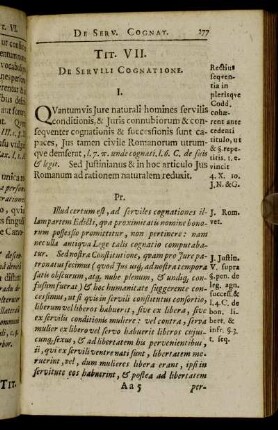 DE SERV. COGNAT. 377
TIT. VII.
DE SERVILI COGNATIONE.
I.
QUantumvis Jure naturali homines servilis
conditionis, & Juris connubiorum & con-
seqventer cognationis & successionis sunt ca-
paces, Jus tamen civile Romanorum utrum-
qve demserat, l. 7. ff. unde cognati. l. 6. C. de suis
& legit. Sed Justinianus & in hoc articulo Jus
Romanum ad rationem naturalem reduxit.
Pr.
Illud certum est, ad serviles cognationes il-
lam partem Edicti, qua proximitatis nomine bono-
rum possessio promittitur, non pertinere: nam
nec ulla antiqua Lege talis cognatio computaba-
tur. Sed nostra Constitutione, quam pro Jure pa-
tronatus fecimus (quod Jus usq; ad nostra tempora
satis obscurum, atq; nube plenum, & undiq; con-
fusum fuerat) & hoc humanitate suggerente con-
cessimus, ut si quis in servili constitutus consortio,
librum vel liberos habuerit, sive ex libera, sive
ex servilis conditionis muliere: vel contra, serva
mulier ex libero vel servo habuerit liberos cujus-
cunq; sexus, & ad libertatem his pervenientibus,
ii, qui ex servili ventre nati sunt, libertatem me-
ruerint, vel, dum mulieres liberæ erant, ipsi in
servitute eos habuerint, & postea ad libertatem
Aa 5 per-
Rectius
seqven-
tia in
plerisqve
Codd.
cohæ-
rent ante
cedenti
titulo, ut
& §. repe-
titis. 1. e.
vincit
4. X. 10.
J. N. & G.
J. Rom.
vet.
J. Justin.
V. supra
§. pen. de
leg. agn.
success. &
l. 4. C. de
bon. li-
bert. &
infr. §. 3.
t. seq.
TIT.